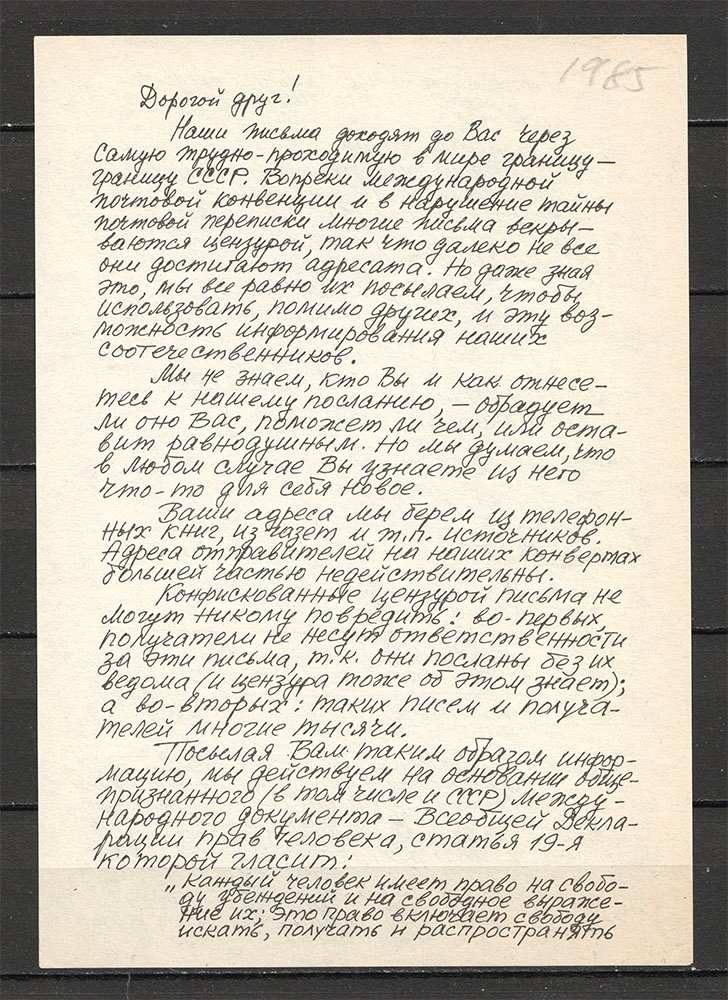 1985
Дорогой друг!
Наши письма доходят до Вас через
самую трудно-проходимую в мире границу —
границу СССР. Вопреки международной
почтовой конвенции и в нарушение тайны
почтовой переписки многие письма вскры-
ваются цензурой, так что далеко не все
они достигают адресата. Но даже зная
это, мы все равно их посылаем, чтобы
использовать, помимо других, и эту воз-
можность информирования наших
соотечественников.
Мы не знаем, кто Вы и как отнесе-
тесь к нашему посланию, — обрадует
ли оно Вас, поможет ли чем, или оста-
вит равнодушным. Но мы думаем, что
в любом случае Вы узнаете из него
что-то для себя новое.
Ваши адреса мы берем из телефон-
ных книг, из газет и т.п. источников.
Адреса отправителей на наших конвертах
большей частью недействительны.
Конфискованные цензурой письма не
могут никому повредить: во-первых,
получатели не несут ответственности
за эти письма, т.к. они посланы без их
ведома (и цензура тоже об этом знает);
а во-вторых: таких писем и получа-
телей многие тысячи.
Посылая Вам таким образом инфор-
мацию, мы действуем на основании обще-
признанного (в том числе и СССР) между-
народного документа — Всеобщей Декла-
рации прав человека, статья 19-я
которой гласит:
„Каждый человек имеет право на свобо-
ду убеждений и на свободное выраже-
ние их; это право включает свободу
искать, получать и распространять